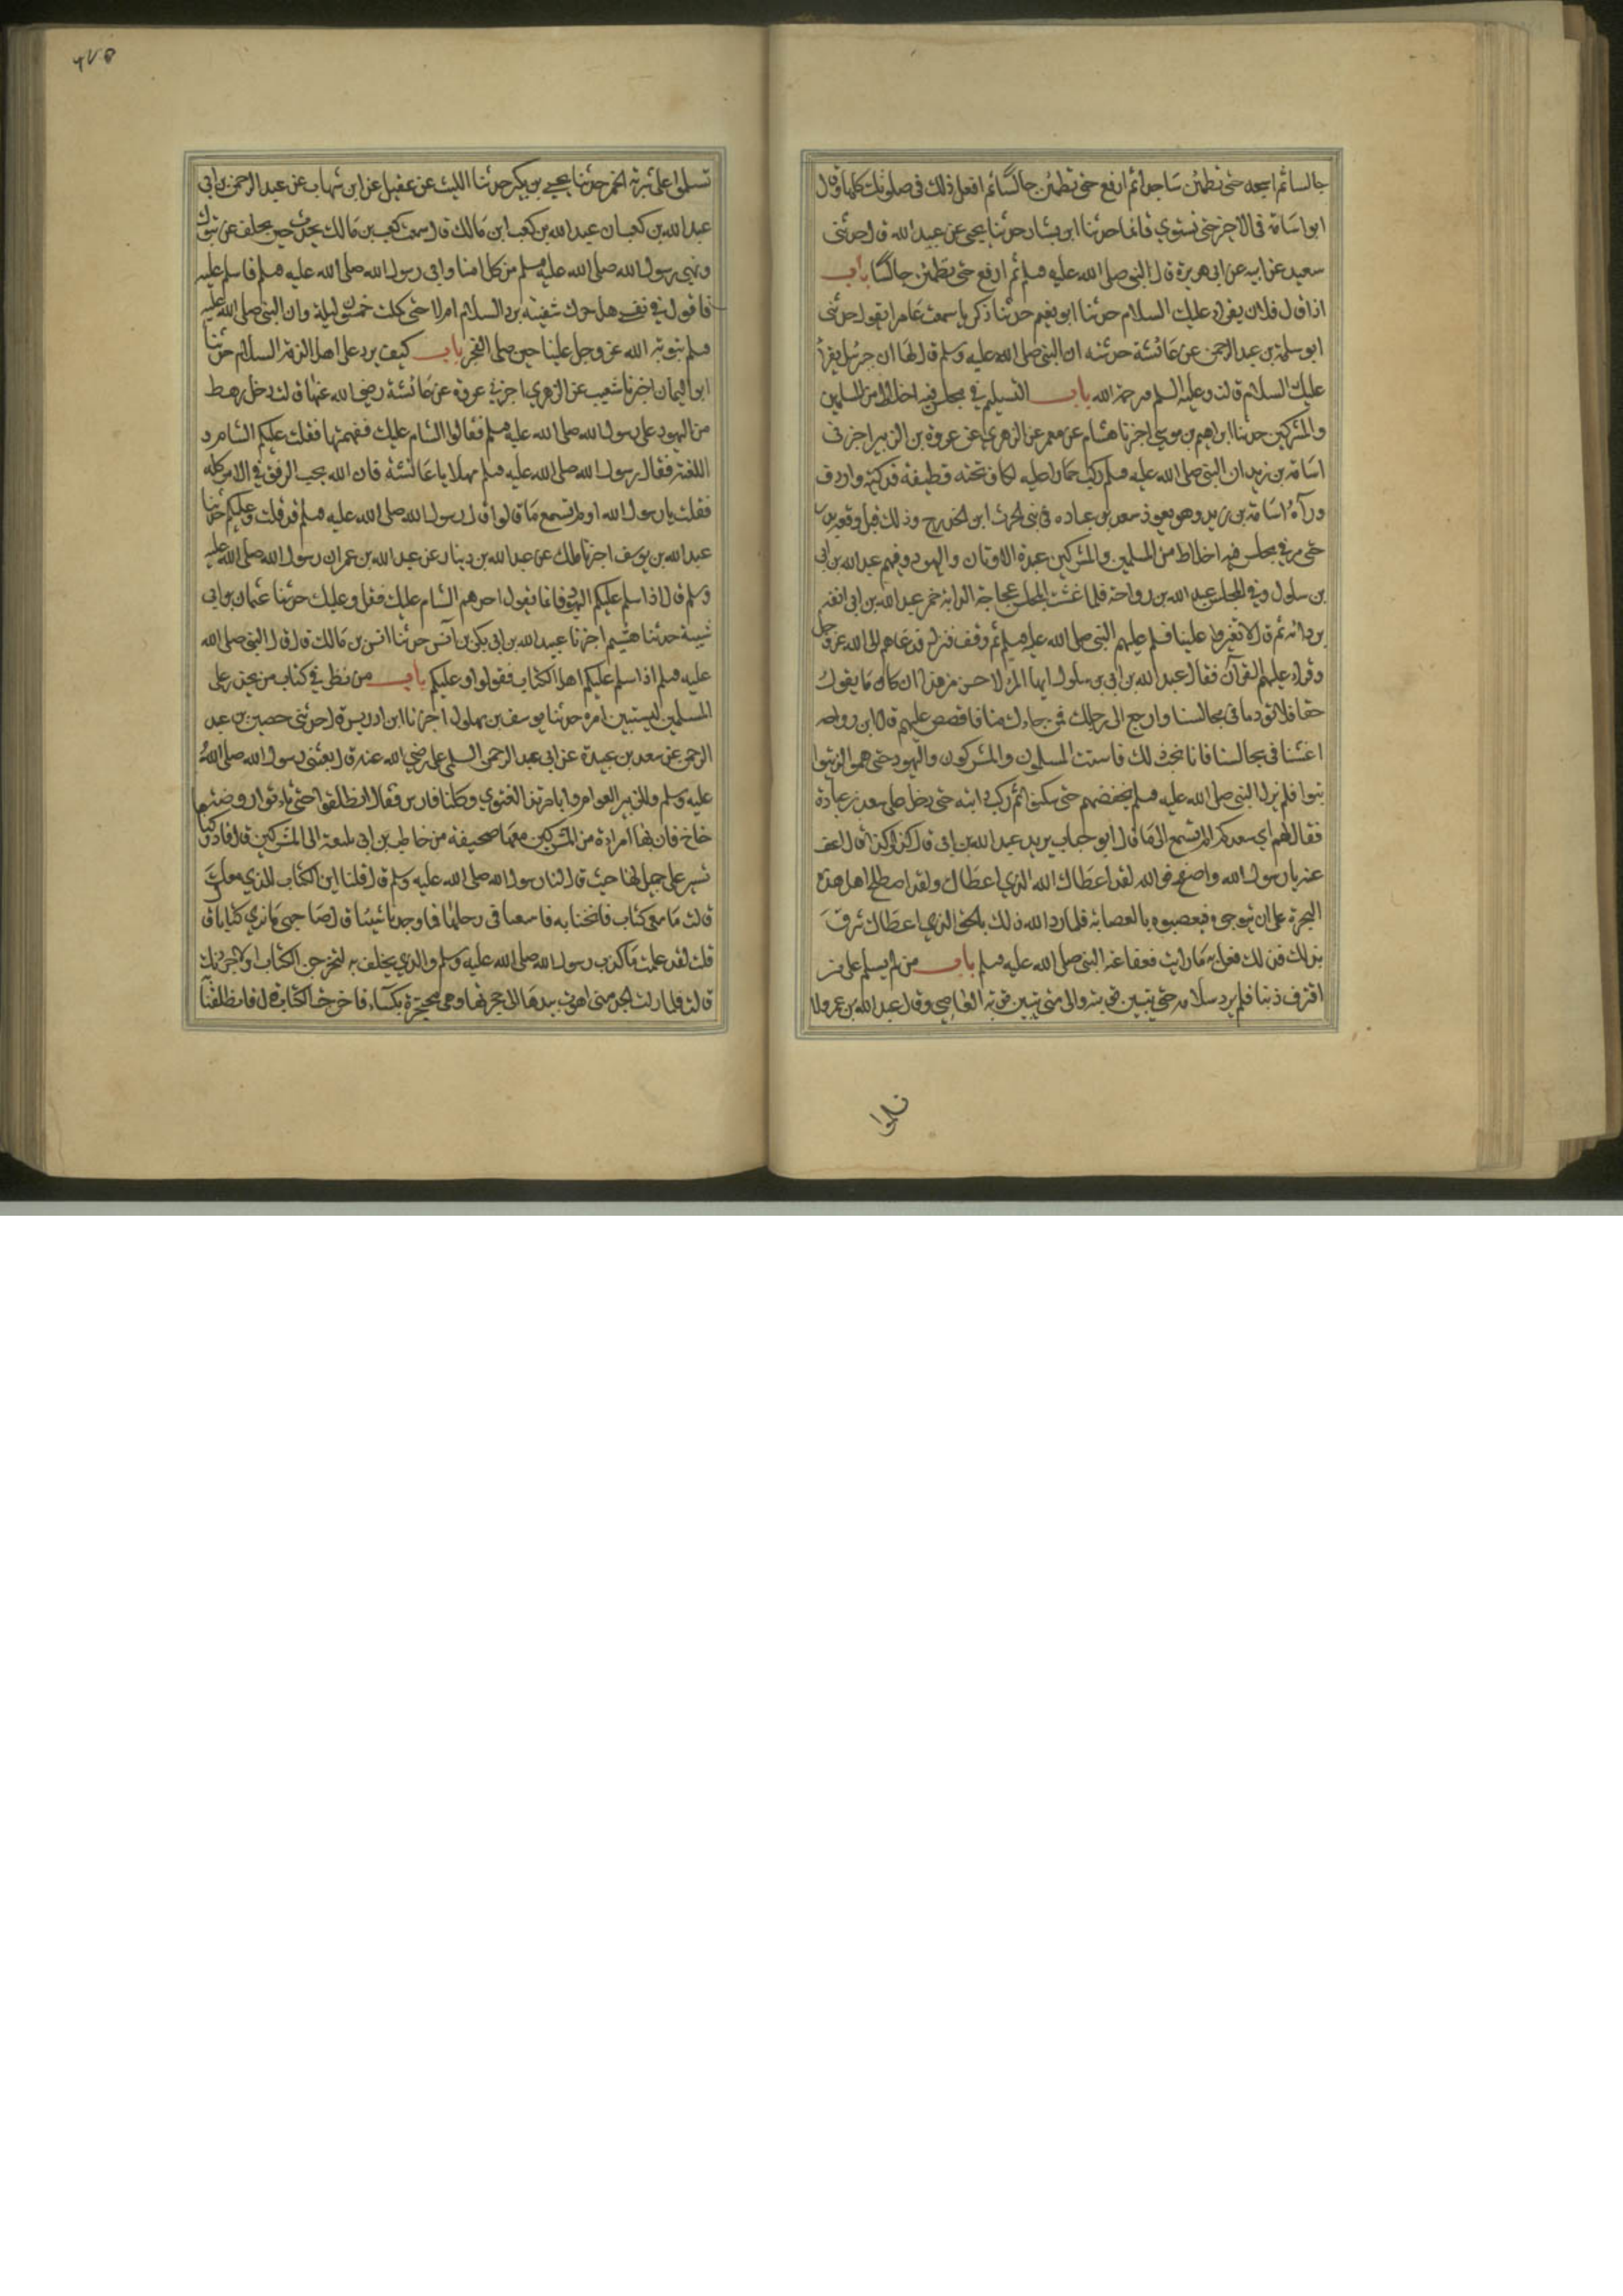 جالسا ثم اسجد حتى تطمئن ساجدا ثم ارفع حتى تطمئن جالسا ثم افعل ذلك في صلوتك كلها وقال
ابو اسامة في الاخير حتى تستوي قائما حدثنا ابن بشار حدثنا يحيى عن عبيد الله قال حدثني
سعيد عن ابيه عن ابي هريرة قال النبي صلى الله عليه وسلم ثم ارفع حتى تطمئن جالسا باب
اذا قال فلان يقرئك عليك السلام حدثنا ابو نعيم حدثنا زكريا سمعت عامرا يقول حدثني
ابو سلمة بن عبد الرحمن عن عائشة حدثته ان النبي صلى الله عليه وسلم قال لها ان جبريل يقرأ
عليك السلام قالت وعليه السلم ورحمة الله باب التسليم في مجلس فيه اخلاط من المسلمين
والمشركين حدثنا ابراهيم بن موسى اخبرنا هشام عن معمر عن الزهري عن عروة بن الزبير اخبرني
اسامة بن زيد ان النبي صلى الله عليه وسلم ركب حمارا عليه اكاف تحته قطيفة فدكية واردف
وراءه اسامة بن زيد وهو يعود سعد بن عباده في بني الحرث ابن الخزرج وذلك قبل وقعة بدر
حتى مر في مجلس فيه اخلاط من المسلمين والمشركين عبدة الاوثان واليهود وفيهم عبد الله بن ابي
بن سلول وفي المجلس عبد الله بن رواحة فلما غشت المجلس عجاجة الدابة خمر عبد الله بن ابي انفه
بردائه ثم قال لا تغبروا علينا فسلم عليهم النبي صلى الله عليه وسلم ثم وقف فنزل فدعاهم الى الله عز وجل
وقراء عليهم القرآن فقال عبد الله بن ابي بن سلول ايها المرء لا احسن من هذا ان كان ما يقول
حقا فلا تؤذنا في مجالسنا وارجع الى رحلك فمن جاءك منا فاقصص عليهم قال ابن رواحه
اغشنا في مجالسنا فانا نحب ذلك فاستب المسلمون والمشركون واليهود حتى هموا ان يتوا
ثبوا فلم يزل النبي صلى الله عليه وسلم يخفضهم حتى سكنوا ثم ركب دابته حتى دخل على سعد بن عبادة
فقال لهم اي سعد الم تسمع الى ما قال ابو حباب يريد عبد الله بن ابي قال كذا وكذا قال اعف
عنه يا رسول الله واصفح فوالله لقد اعطاك الله الذي اعطاك ولقد اصطلح اهل هذه
البحرة على ان يتوجوه فيعصبوه بالعصابة فلما رد الله ذلك بالحق الذي اعطاك شرق
بذلك فذلك فعل به ما رايت فعفا عنه النبي صلى الله عليه وسلم باب من لم يسلم على من
اقترف ذنبا فلم يرد سلامه حتى تتبين توبته والى متى تتبين توبة العاصي وقال عبد الله بن عمرو لا
تسلموا
٤٧٥
تسلموا على شربة الخمر حدثنا يحيى بن بكير حدثنا الليث عن عقيل عن ابن شهاب عن عبد الرحمن بن ابي
عبد الله بن كعب ان عبد الله بن كعب ابن مالك قال سمعت كعب بن مالك يحدث حين تخلف عن تبوك
ونهى رسول الله صلى الله عليه وسلم من كلامنا واتي رسول الله صلى الله عليه وسلم فاسلم عليه
فاقول في نفسي هل حرك شفتيه برد السلام ام لا حتى كملت خمسون ليلة وان النبي صلى الله عليه
وسلم بتوبة الله عز وجل علينا حين صلى الفجر باب كيف يرد على اهل الذمة السلام حدثنا
ابو اليمان اخبرنا شعيب عن الزهري اخبرني عروة عن عائشة رضي الله عنها قالت دخل رهط
من اليهود على رسول الله صلى الله عليه وسلم فقالوا السام عليك ففهمتها فقلت عليكم السام و
اللعنة فقال رسول الله صلى الله عليه وسلم مهلا يا عائشة فان الله يحب الرفق في الامر كله
فقلت يا رسول الله او لم تسمع ما قالوا قال رسول الله صلى الله عليه وسلم قد قلت وعليكم حدثنا
عبد الله بن يوسف اخبرنا ملك عن عبد الله بن دينار عن عبد الله بن عمر ان رسول الله صلى الله عليه
وسلم قال اذا سلم عليكم اليهود فانما يقول احدهم السام عليك فقل وعليك حدثنا عثمان بن ابي
شيبة حدثنا هشيم اخبرنا عبيد الله بن ابي بكر بن انس حدثنا انس بن مالك قال قال النبي صلى الله
عليه وسلم اذا سلم عليكم اهل الكتاب فقولوا وعليكم باب من نظر في كتاب من يحذر على
المسلمين ليستبين امره حدثنا يوسف بن بهلول اخبرنا ابن ادريس قال حدثني حصين بن عبد
الرحمن عن سعد بن عبيدة عن ابي عبد الرحمن السلمي على رضي الله عنه قال بعثني رسول الله صلى الله
عليه وسلم والزبير العوام وابا مرثد الغنوي وكلنا فارس فقال انطلقوا حتى تاءتوا روضة
خاخ فان بها امراءة من المشركين معها صحيفة من حاطب بن ابي بلتعة الى المشركين قال فادركنا
تسير على جمل لها حيث قال لنا رسول الله صلى الله عليه وسلم قال قلنا اين الكتاب الذي معك
قالت ما معي كتاب فانخنا بها فابتغينا في رحلها فما وجدنا شيئا قال صاحبي ما نرى كتابا قال
قلت لقد علمت ما كذب رسول الله صلى الله عليه وسلم والذي يحلف به لتخرجن الكتاب او لاجردنك
قالت فلما رات الجد مني اهوت بيدها الى حجزتها وهي محتجزة بكساء فاخرجت الكتاب قال فانطلقنا